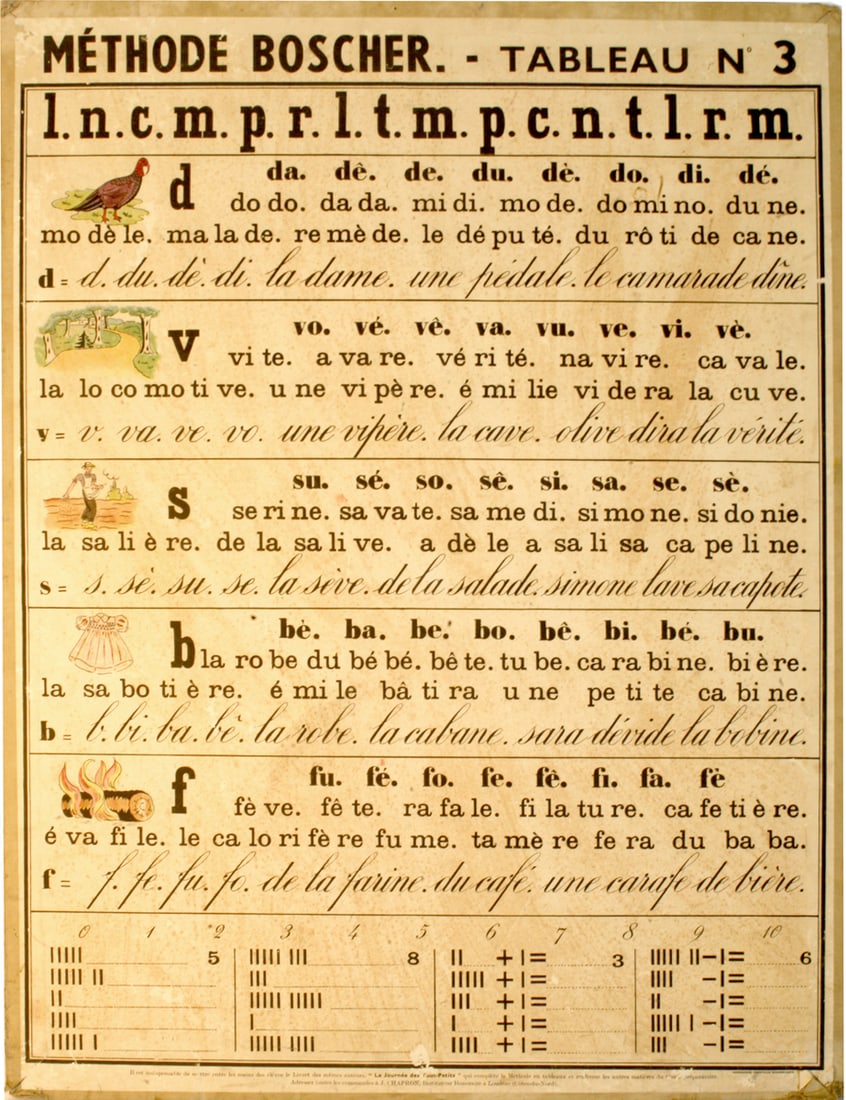 MÉTHODE BOSCHER. - TABLEAU N° 3
l. n. c. m. p. r. l. t. m. p. c. n. t. l. r. m.
d da. dê. de. du. dè. do. di. dé.
do do. da da. mi di. mo de. do mi no. du ne.
mo dè le. ma la de. re mè de. le dé pu té. du rô ti de ca ne.
d = d. du. dè. di. la dame. une pédale. le camarade dîne.
v vo. vé. vê. va. vu. ve. vi. vè.
vi te. a va re. vé ri té. na vi re. ca va le.
la lo co mo ti ve. u ne vi pè re. é mi lie vi de ra la cu ve.
v = v. va. ve. vo. une vipère. la cave. olive dira la vérité.
s su. sé. so. sê. si. sa. se. sè.
se ri ne. sa va te. sa me di. si mo ne. si do nie.
la sa li è re. de la sa li ve. a dè le a sa li sa ca pe li ne.
s = s. sè. su. se. la sève. de la salade. simone lave sa capote.
b bè. ba. be. bo. bê. bi. bé. bu.
la ro be du bé bé. bê te. tu be. ca ra bi ne. bi è re.
la sa bo ti è re. é mi le bâ ti ra u ne pe ti te ca bi ne.
b = b. bi. ba. bê. la robe. la cabane. sara dévide la bobine.
f fu. fé. fo. fe. fê. fi. fa. fè
fè ve. fê te. ra fa le. fi la tu re. ca fe ti è re.
é va fi le. le ca lo ri fè re fu me. ta mè re fe ra du ba ba.
f = f. fe. fu. fo. de la farine. du café. une carafe de bière.
0 1 2 3 4 5 6 7 8 9 10
IIIII 5 IIIII III 8 II + I = 3 IIIII II – I = 6
IIIII II III IIIII + I = IIII – I =
II IIIII IIIII III + I = II – I =
IIII I I + I = IIIII I – I =
IIIII I IIIII IIII IIII + I = III – I =
"La Journée des Tout-Petits"